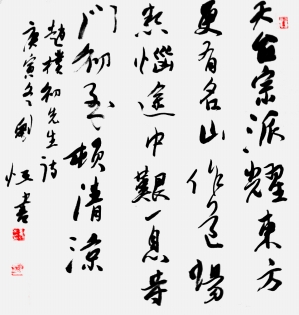 天台宗派耀東方
更有名山作道場
熱惱途中艱一息寺
門初至頓清涼
趙樸初先生詩
庚寅冬劉恒書